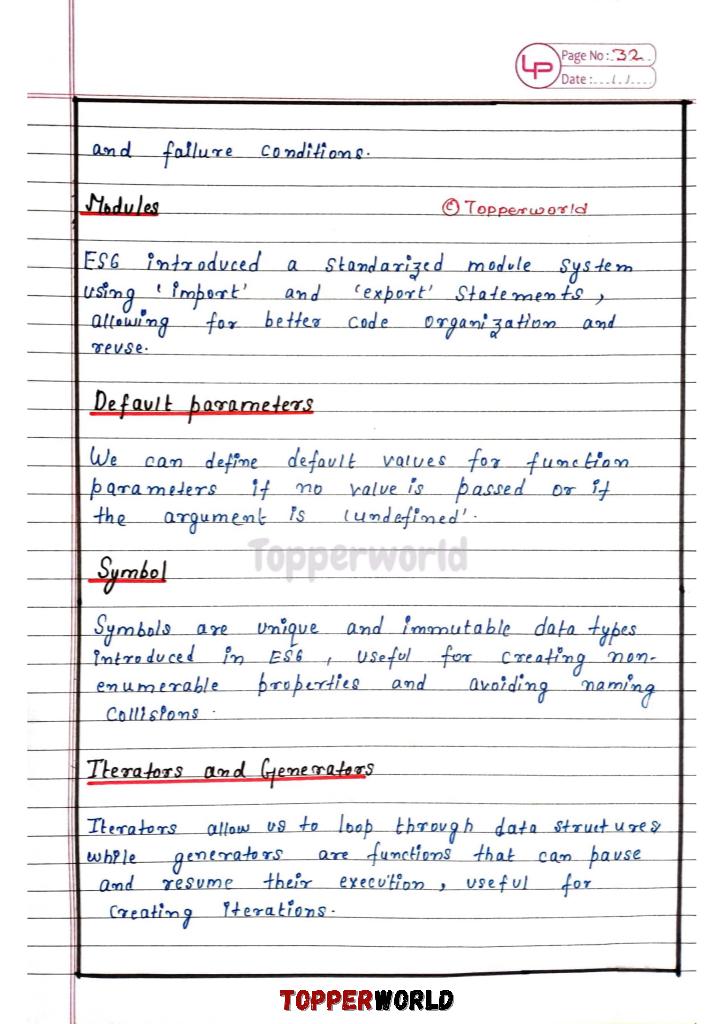 LP
Page No: 32
Date: ...(.)....
and failure conditions.
Modules
© Topperworld
ES6 introduced a standarized module system
using 'import' and 'export' statements,
allowing for better code organization and
reuse.
Default parameters
We can define default values for function
parameters if no value is passed or if
the argument is 'undefined'.
Topperworld
Symbol
Symbols are unique and immutable data types
introduced in ES6, useful for creating non-
enumerable properties and avoiding naming
collisions.
Iterators and Generators
Iterators allow us to loop through data structures
while generators are functions that can pause
and resume their execution, useful for
creating iterations.
TOPPERWORLD